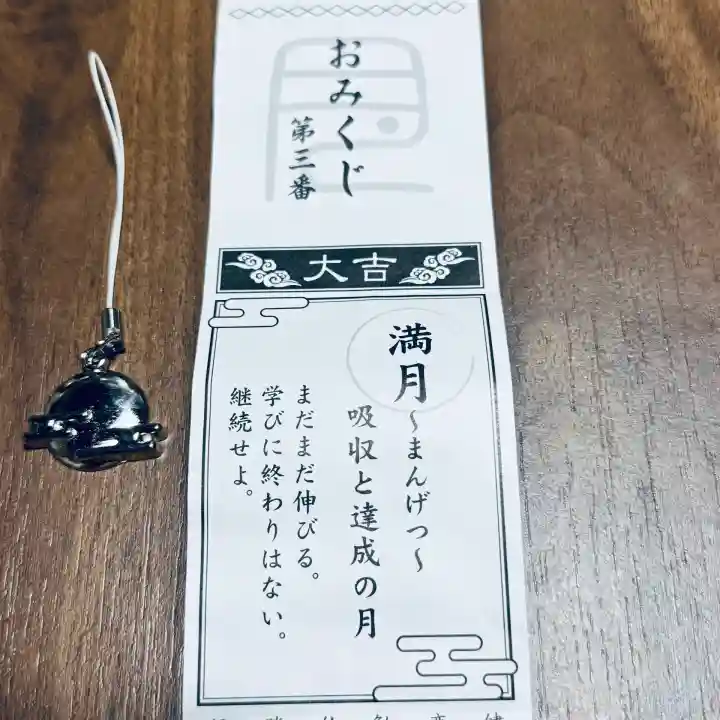 おみくじ
第三番
大吉
満月～まんげつ～
吸収と達成の月
まだまだ伸びる。
学びに終わりはない。
継続せよ。